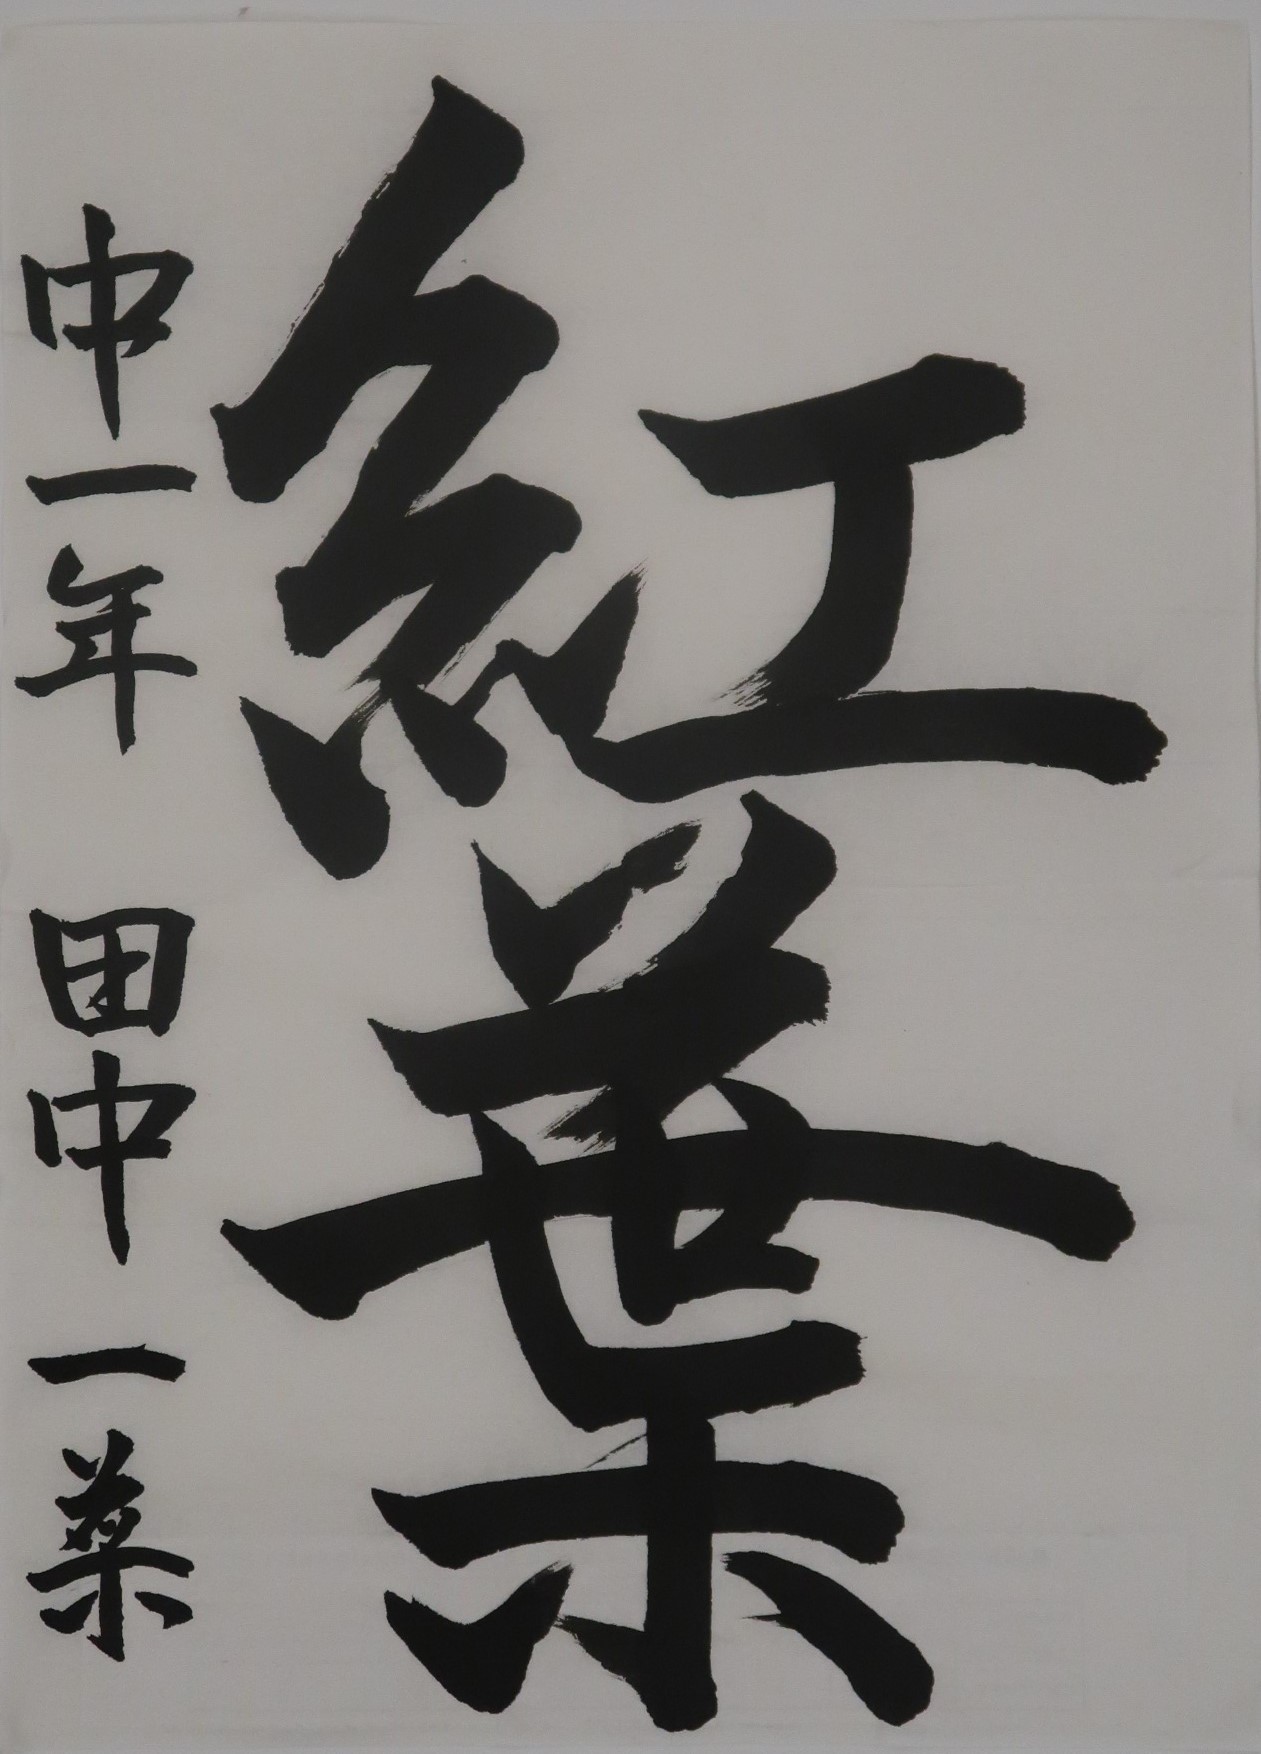 紅葉
中一年 田中 一葉